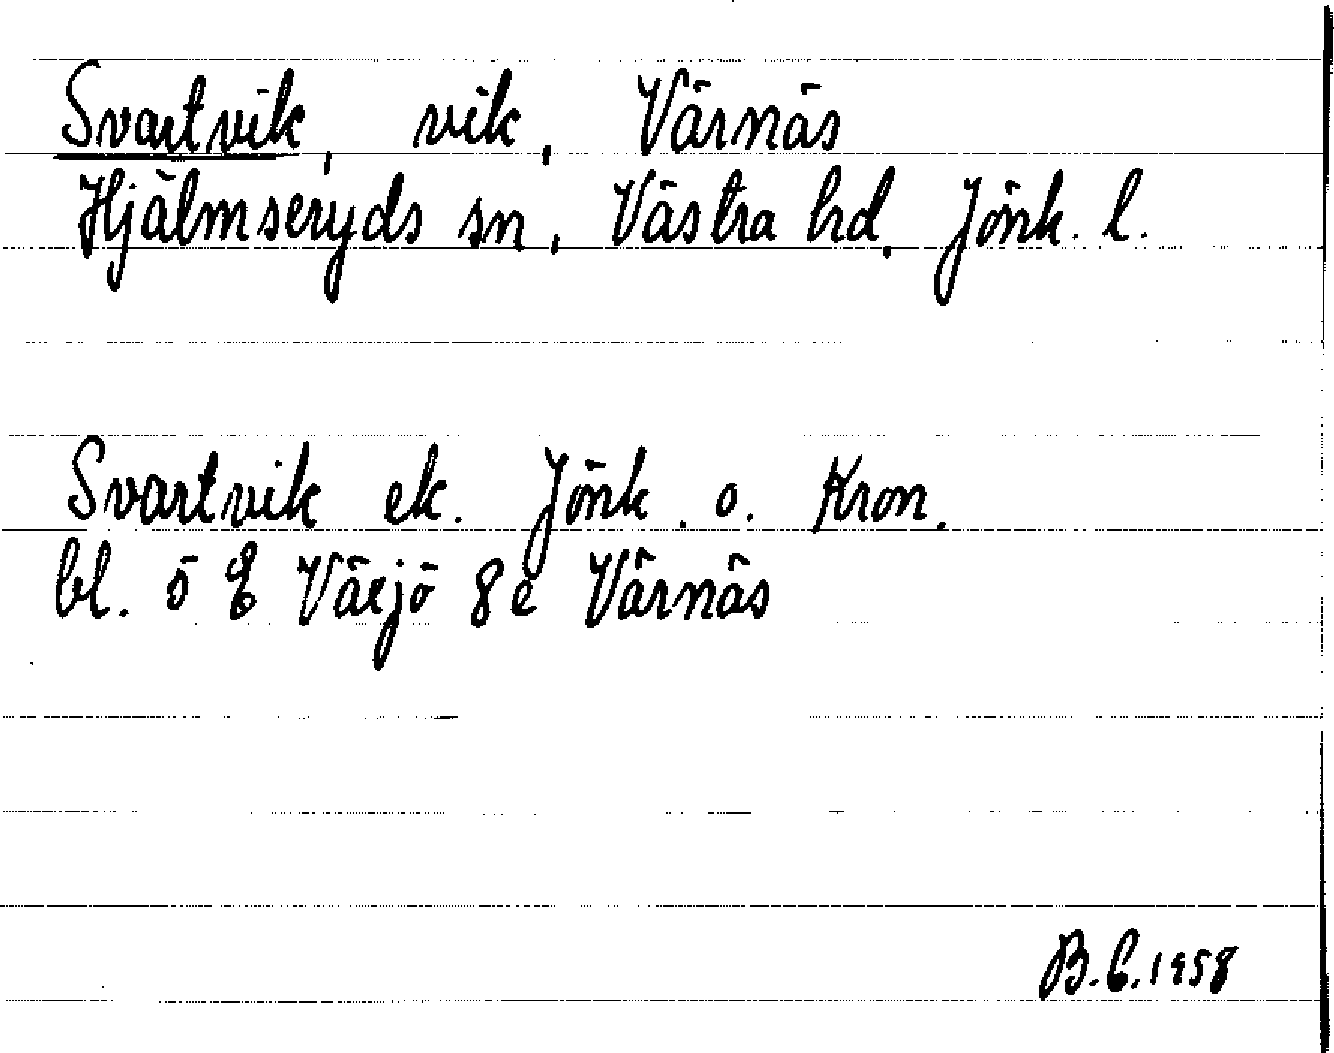 Svartvik, vik, Värnäs
Hjälmseryds sn, Västra hd, Jönk. l.
Svartvik ek. Jönk. o. Kron.
bl. 5 E Växjö 8e Värnäs
B.C. 1958